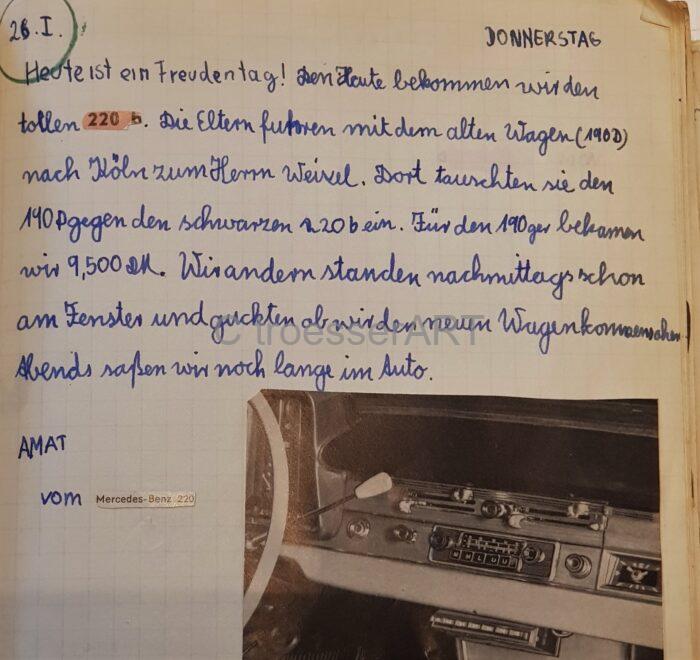 26.I. DONNERSTAG
Heute ist ein Freudentag! Den Heute bekommen wir den
tollen 220 b. Die Eltern fuhren mit dem alten Wagen (190D)
nach Köln zum Herrn Weixel. Dort tauschten sie den
190D gegen den schwarzen 220 b ein. Für den 190ger bekamen
wir 9,500 DM. Wir andern standen nachmittags schon
am Fenster und guckten ob wir den neuen Wagen kommen sahen
Abends saßen wir noch lange im Auto.
AMAT
vom Mercedes-Benz 220
© troesserART